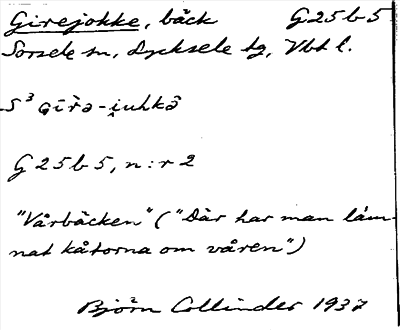 Girejokke, bäck G 25 b 5
Sorsele sn, Lycksele tg, Vbt l.
S³ Gī̀rə-i̯uhkə̂
G 25 b 5, n:r 2
"Vårbäcken" ("Där har man läm-
nat kåtorna om våren")
Björn Collinder 1937